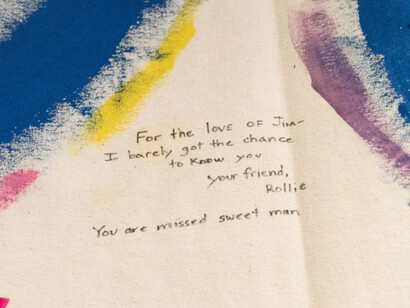 For the love of Jim-
I barely got the chance
to know you
your friend,
Rollie
You are missed sweet man